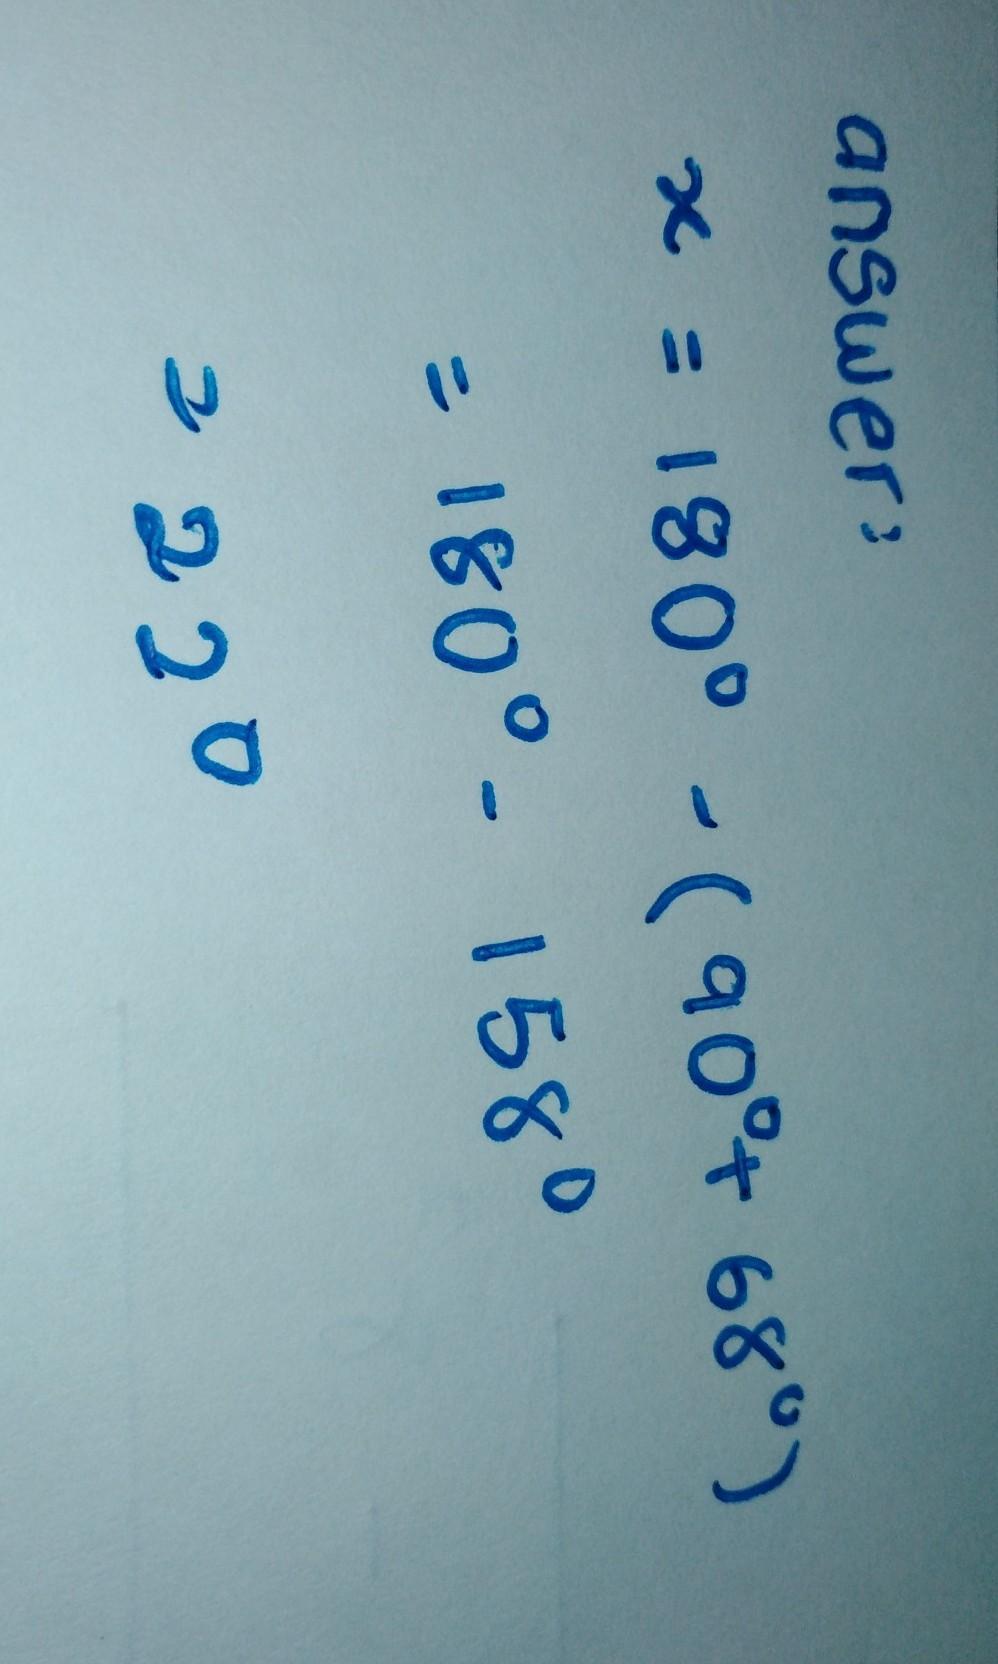 answer:
x = 180° - (90° + 68°)
= 180° - 158°
= 22°